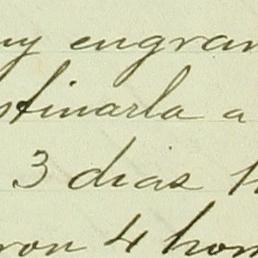 uy engran
stinarla a
3 dias
ron 4 hom